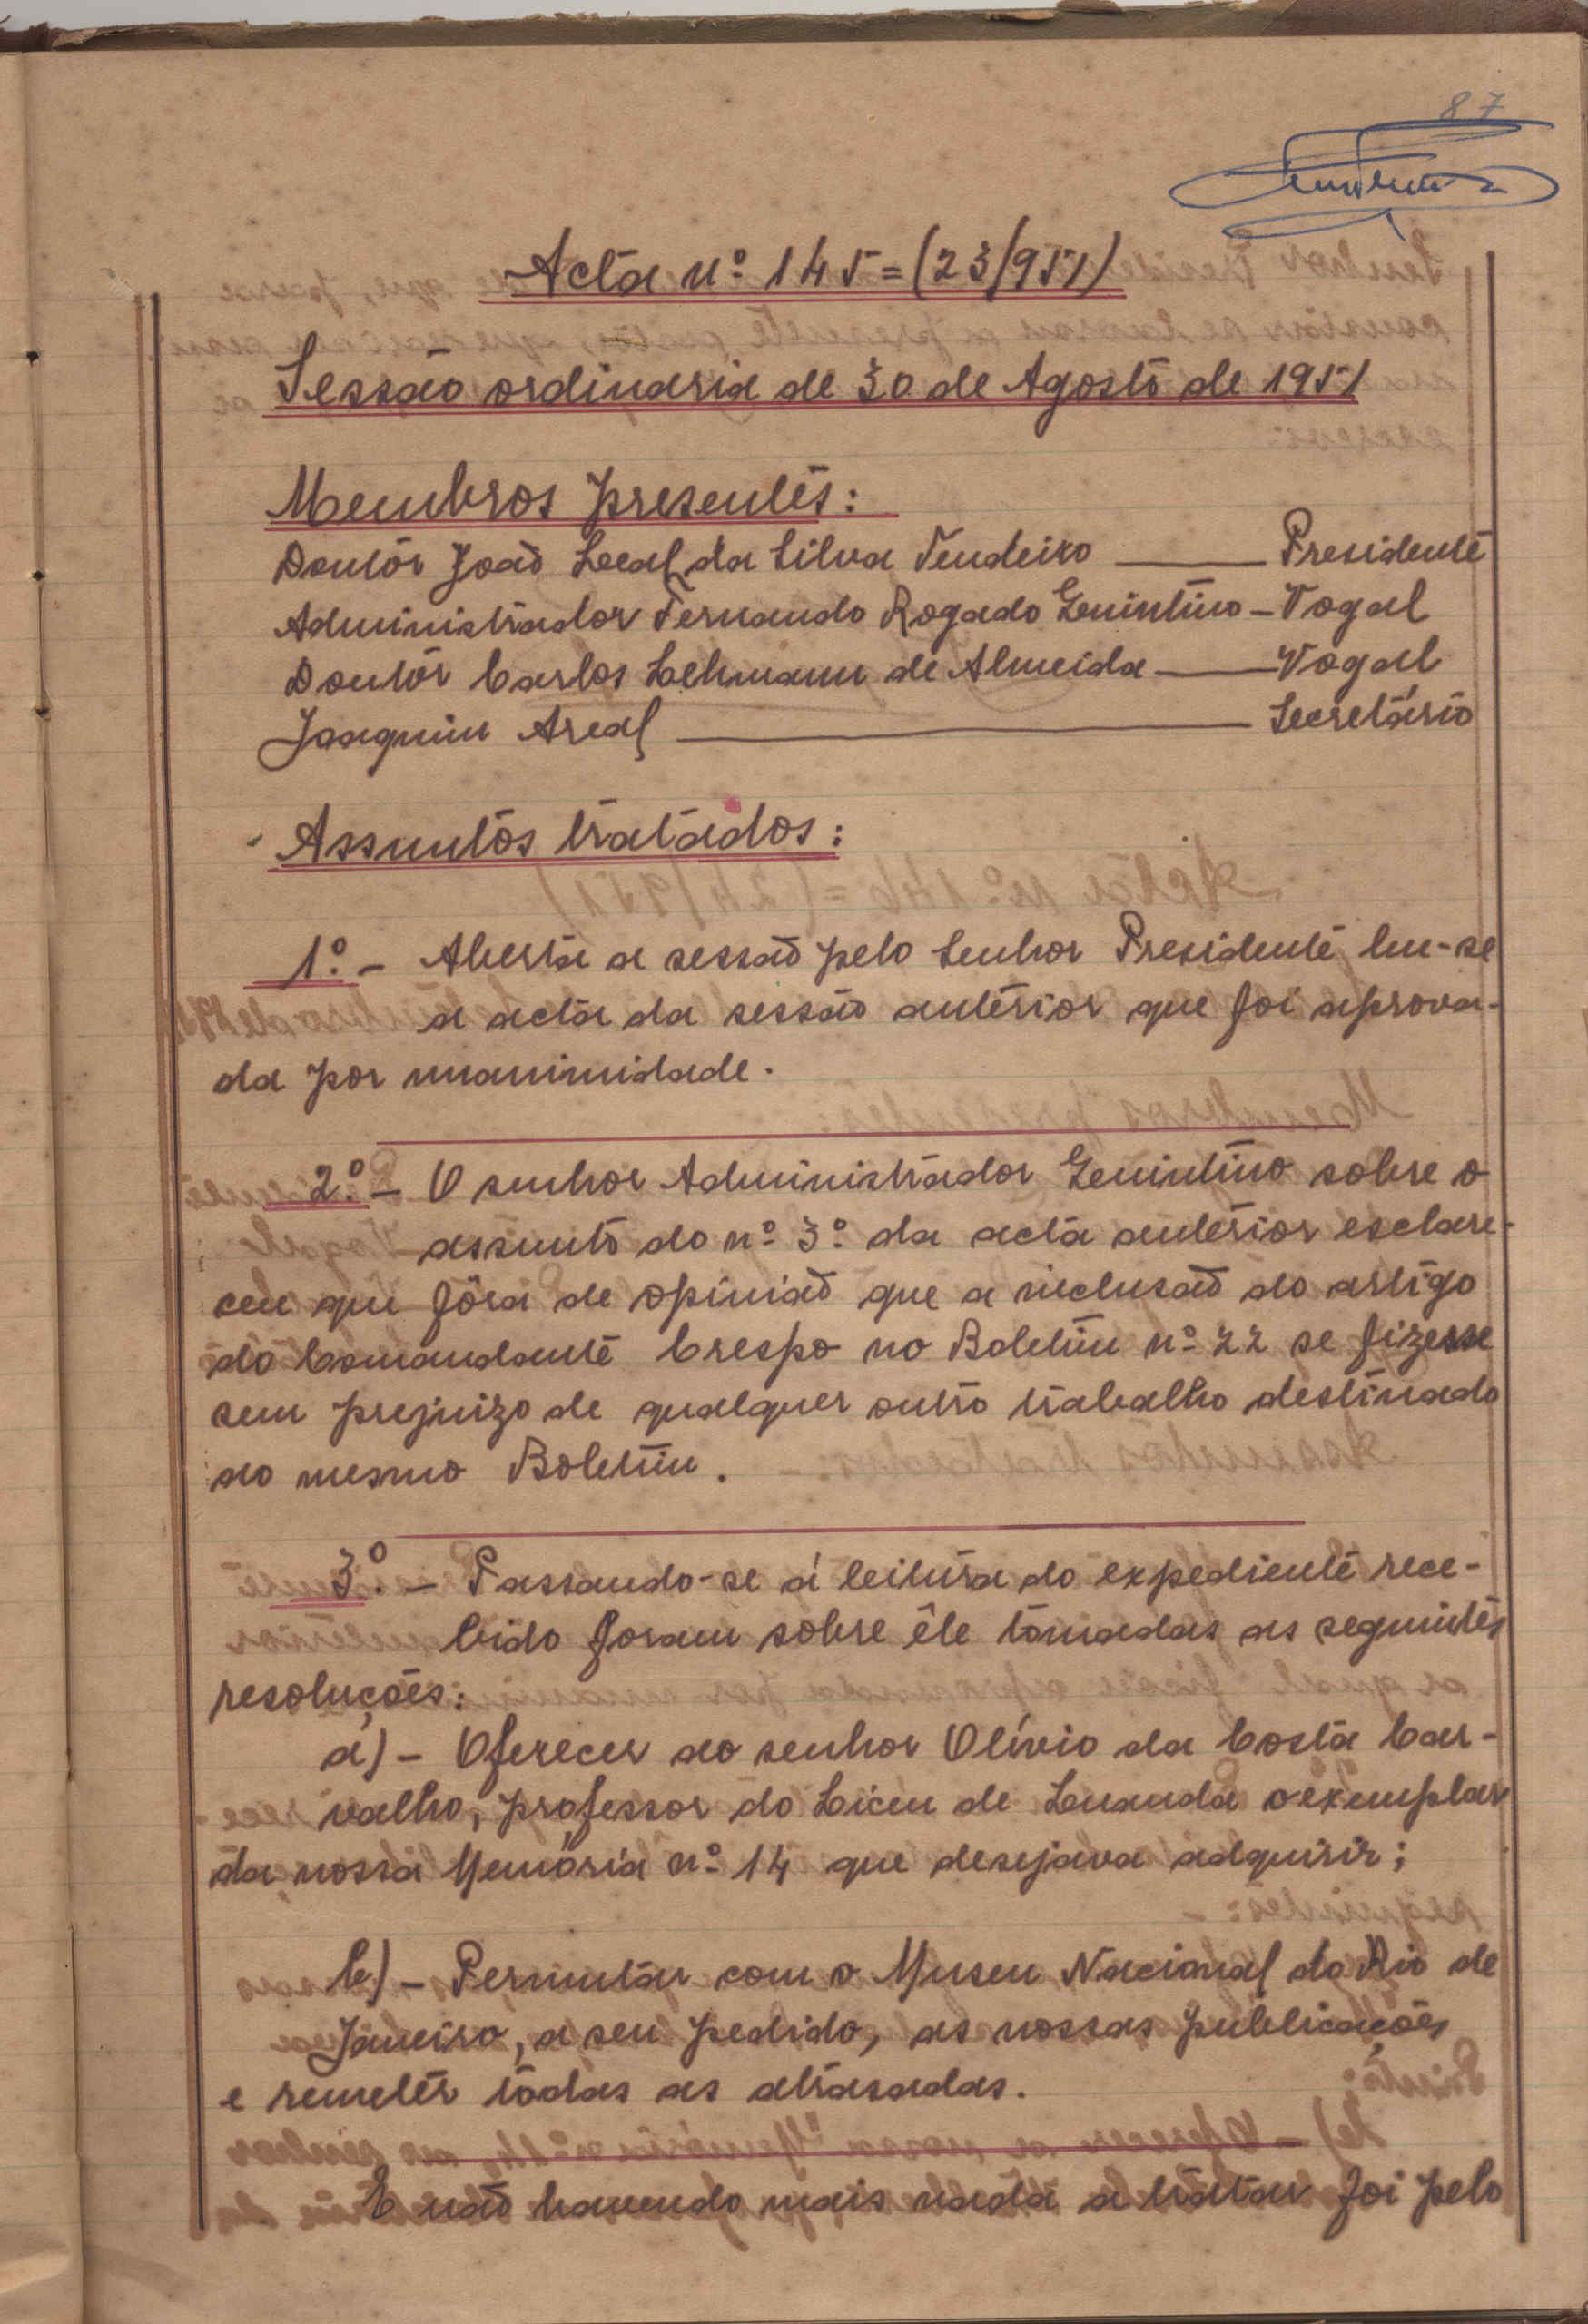 87
Acta nº 145 = (23/951)
Sessão ordinaria de 30 de Agosto de 1951
Membros presentes:
Doutor João Leal da Silva Tendeiro — Presidente
Administrador Fernando Rogado Quintino - Vogal
Doutor Carlos Lehmann de Almeida — Vogal
Joaquim Areal — Secretário
Assuntos tratados:
1º. - Aberta a sessão pelo Senhor Presidente leu-se
a acta da sessão anterior que foi aprova-
da por unanimidade.
2º. - O senhor Administrador Quintino sobre o
assunto do nº 3º da acta anterior esclare-
ceu que fôra de opinião que a inclusão do artigo
do Comandante Crespo no Boletim nº 22 se fizesse
sem prejuizo de qualquer outro trabalho destinado
ao mesmo Boletim.
3º. - Passando-se á leitura do expediente rece-
bido foram sobre êle tomadas as seguintes
resoluções:
a) - Oferecer ao senhor Olívio da Costa Car-
valho, professor do Liceu de Luanda o exemplar
da nossa Memória nº 14 que desejava adquirir;
b) - Permutar com o Museu Nacional do Rio de
Janeiro, a seu pedido, as nossas publicações
e remeter tôdas as atrasadas.
E não havendo mais nada a tratar foi pelo